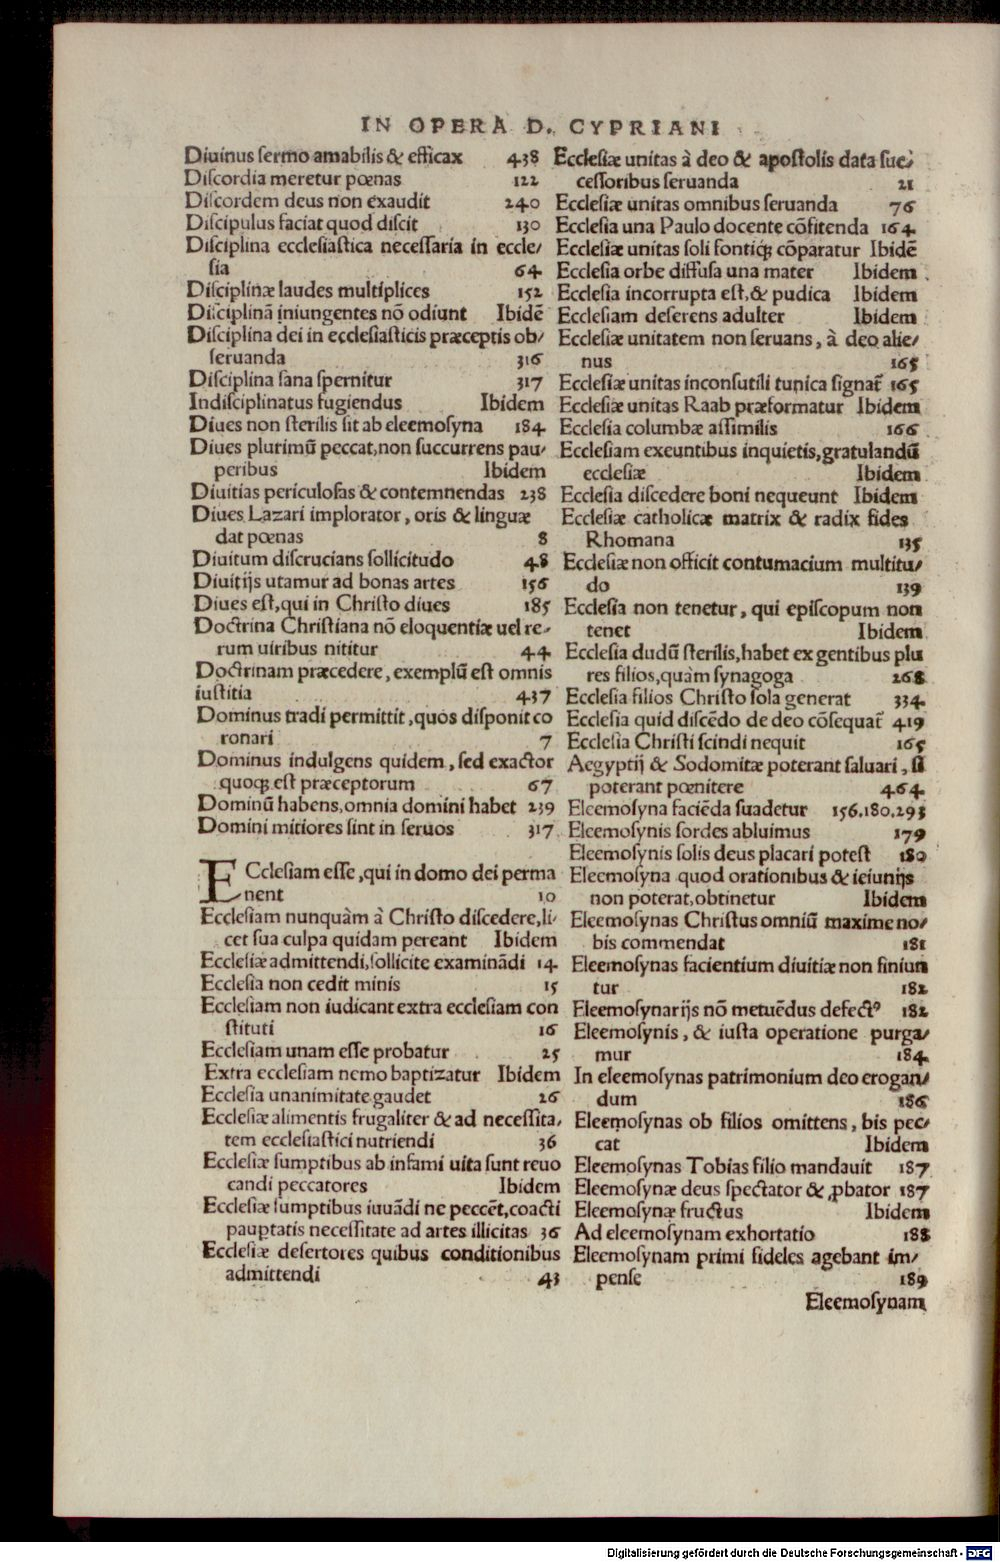 IN OPERA D. CYPRIANI
Diuinus ſermo amabilis & efficax 438
Diſcordia meretur pœnas 122
Diſcordem deus non exaudit 240
Diſcipulus faciat quod diſcit 130
Diſciplina eccleſiaſtica neceſſaria in eccle/
ſia 64
Diſciplinæ laudes multiplices 152
Diſciplinā iniungentes nō odiunt Ibidē
Diſciplina dei in eccleſiaſticis præceptis ob/
ſeruanda 316
Diſciplina ſana ſpernitur 317
Indiſciplinatus fugiendus Ibidem
Diues non ſterilis ſit ab eleemoſyna 184
Diues plurimū peccat,non ſuccurrens pau/
peribus Ibidem
Diuitias periculoſas & contemnendas 238
Diues Lazari implorator, oris & linguæ
dat pœnas 8
Diuitum diſcrucians ſollicitudo 48
Diuitijs utamur ad bonas artes 156
Diues eſt,qui in Chriſto diues 185
Doctrina Chriſtiana nō eloquentiæ uel re/
rum uiribus nititur 44
Doctrinam præcedere, exemplū eſt omnis
iuſtitia 437
Dominus tradi permittit,quos diſponit co
ronari 7
Dominus indulgens quidem, ſed exactor
quoqꝫ eſt præceptorum 67
Dominū habens,omnia domini habet 239
Domini mitiores ſint in ſeruos 317
ECcleſiam eſſe,qui in domo dei perma
nent 10
Eccleſiam nunquàm à Chriſto diſcedere,li/
cet ſua culpa quidam pereant Ibidem
Eccleſiæ admittendi,ſollicite examinādi 14
Eccleſia non cedit minis 15
Eccleſiam non iudicant extra eccleſiam con
ſtituti 16
Eccleſiam unam eſſe probatur 25
Extra eccleſiam nemo baptizatur Ibidem
Eccleſia unanimitate gaudet 26
Eccleſiæ alimentis frugaliter & ad neceſſita/
tem eccleſiaſtici nutriendi 36
Eccleſiæ ſumptibus ab infami uita ſunt reuo
candi peccatores Ibidem
Eccleſiæ ſumptibus iuuādi ne peccēt,coacti
pauptatis neceſſitate ad artes illicitas 36
Eccleſiæ deſertores quibus conditionibus
admittendi 43
Eccleſiæ unitas à deo & apoſtolis data ſuc/
ceſſoribus ſeruanda 21
Eccleſiæ unitas omnibus ſeruanda 76
Eccleſia una Paulo docente cōfitenda 164
Eccleſiæ unitas ſoli fontiqꝫ cōparatur Ibidē
Eccleſia orbe diffuſa una mater Ibidem
Eccleſia incorrupta eſt,& pudica Ibidem
Eccleſiam deſerens adulter Ibidem
Eccleſiæ unitatem non ſeruans, à deo alie/
nus 165
Eccleſiæ unitas inconſutili tunica ſignat̄ 165
Eccleſiæ unitas Raab præformatur Ibidem
Eccleſia columbæ aſſimilis 166
Eccleſiam exeuntibus inquietis,gratulandū
eccleſiæ Ibidem
Eccleſia diſcedere boni nequeunt Ibidem
Eccleſiæ catholicæ matrix & radix fides
Rhomana 135
Eccleſiæ non officit contumacium multitu/
do 139
Eccleſia non tenetur, qui epiſcopum non
tenet Ibidem
Eccleſia dudū ſterilis,habet ex gentibus plu
res filios,quàm ſynagoga 268
Eccleſia filios Chriſto ſola generat 334
Eccleſia quid diſcēdo de deo cōſequat̄ 419
Eccleſia Chriſti ſcindi nequit 165
Aegyptij & Sodomitæ poterant ſaluari, ſi
poterant pœnitere 464
Eleemoſyna faciēda ſuadetur 156.180.293
Eleemoſynis ſordes abluimus 179
Eleemoſynis ſolis deus placari poteſt 180
Eleemoſyna quod orationibus & ieiunijs
non poterat,obtinetur Ibidem
Eleemoſynas Chriſtus omniū maxime no/
bis commendat 181
Eleemoſynas facientium diuitiæ non finiun
tur 182
Eleemoſynarijs nō metuēdus defectꝰ 182
Eleemoſynis, & iuſta operatione purga/
mur 184
In eleemoſynas patrimonium deo erogan/
dum 186
Eleemoſynas ob filios omittens, bis pec/
cat Ibidem
Eleemoſynas Tobias filio mandauit 187
Eleemoſynæ deus ſpectator & ꝓbator 187
Eleemoſynæ fructus Ibidem
Ad eleemoſynam exhortatio 188
Eleemoſynam primi fideles agebant im/
penſe 189
Eleemoſynam
Digitalisierung gefördert durch die Deutsche Forschungsgemeinschaft - DFG